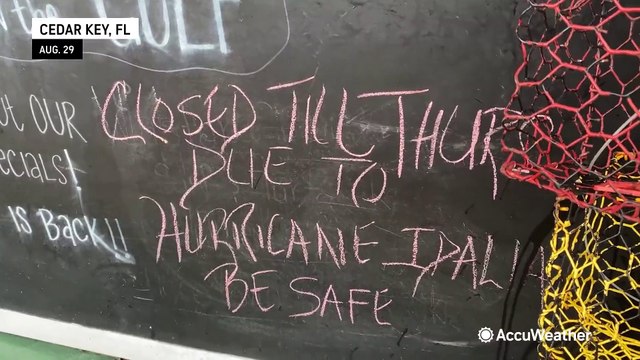 CEDAR KEY, FL
AUG. 29
on the GULF
out OUR
ecials!
is Back!!
CLOSED TILL THURS
DUE TO
HURRICANE IDALIA
BE SAFE
AccuWeather